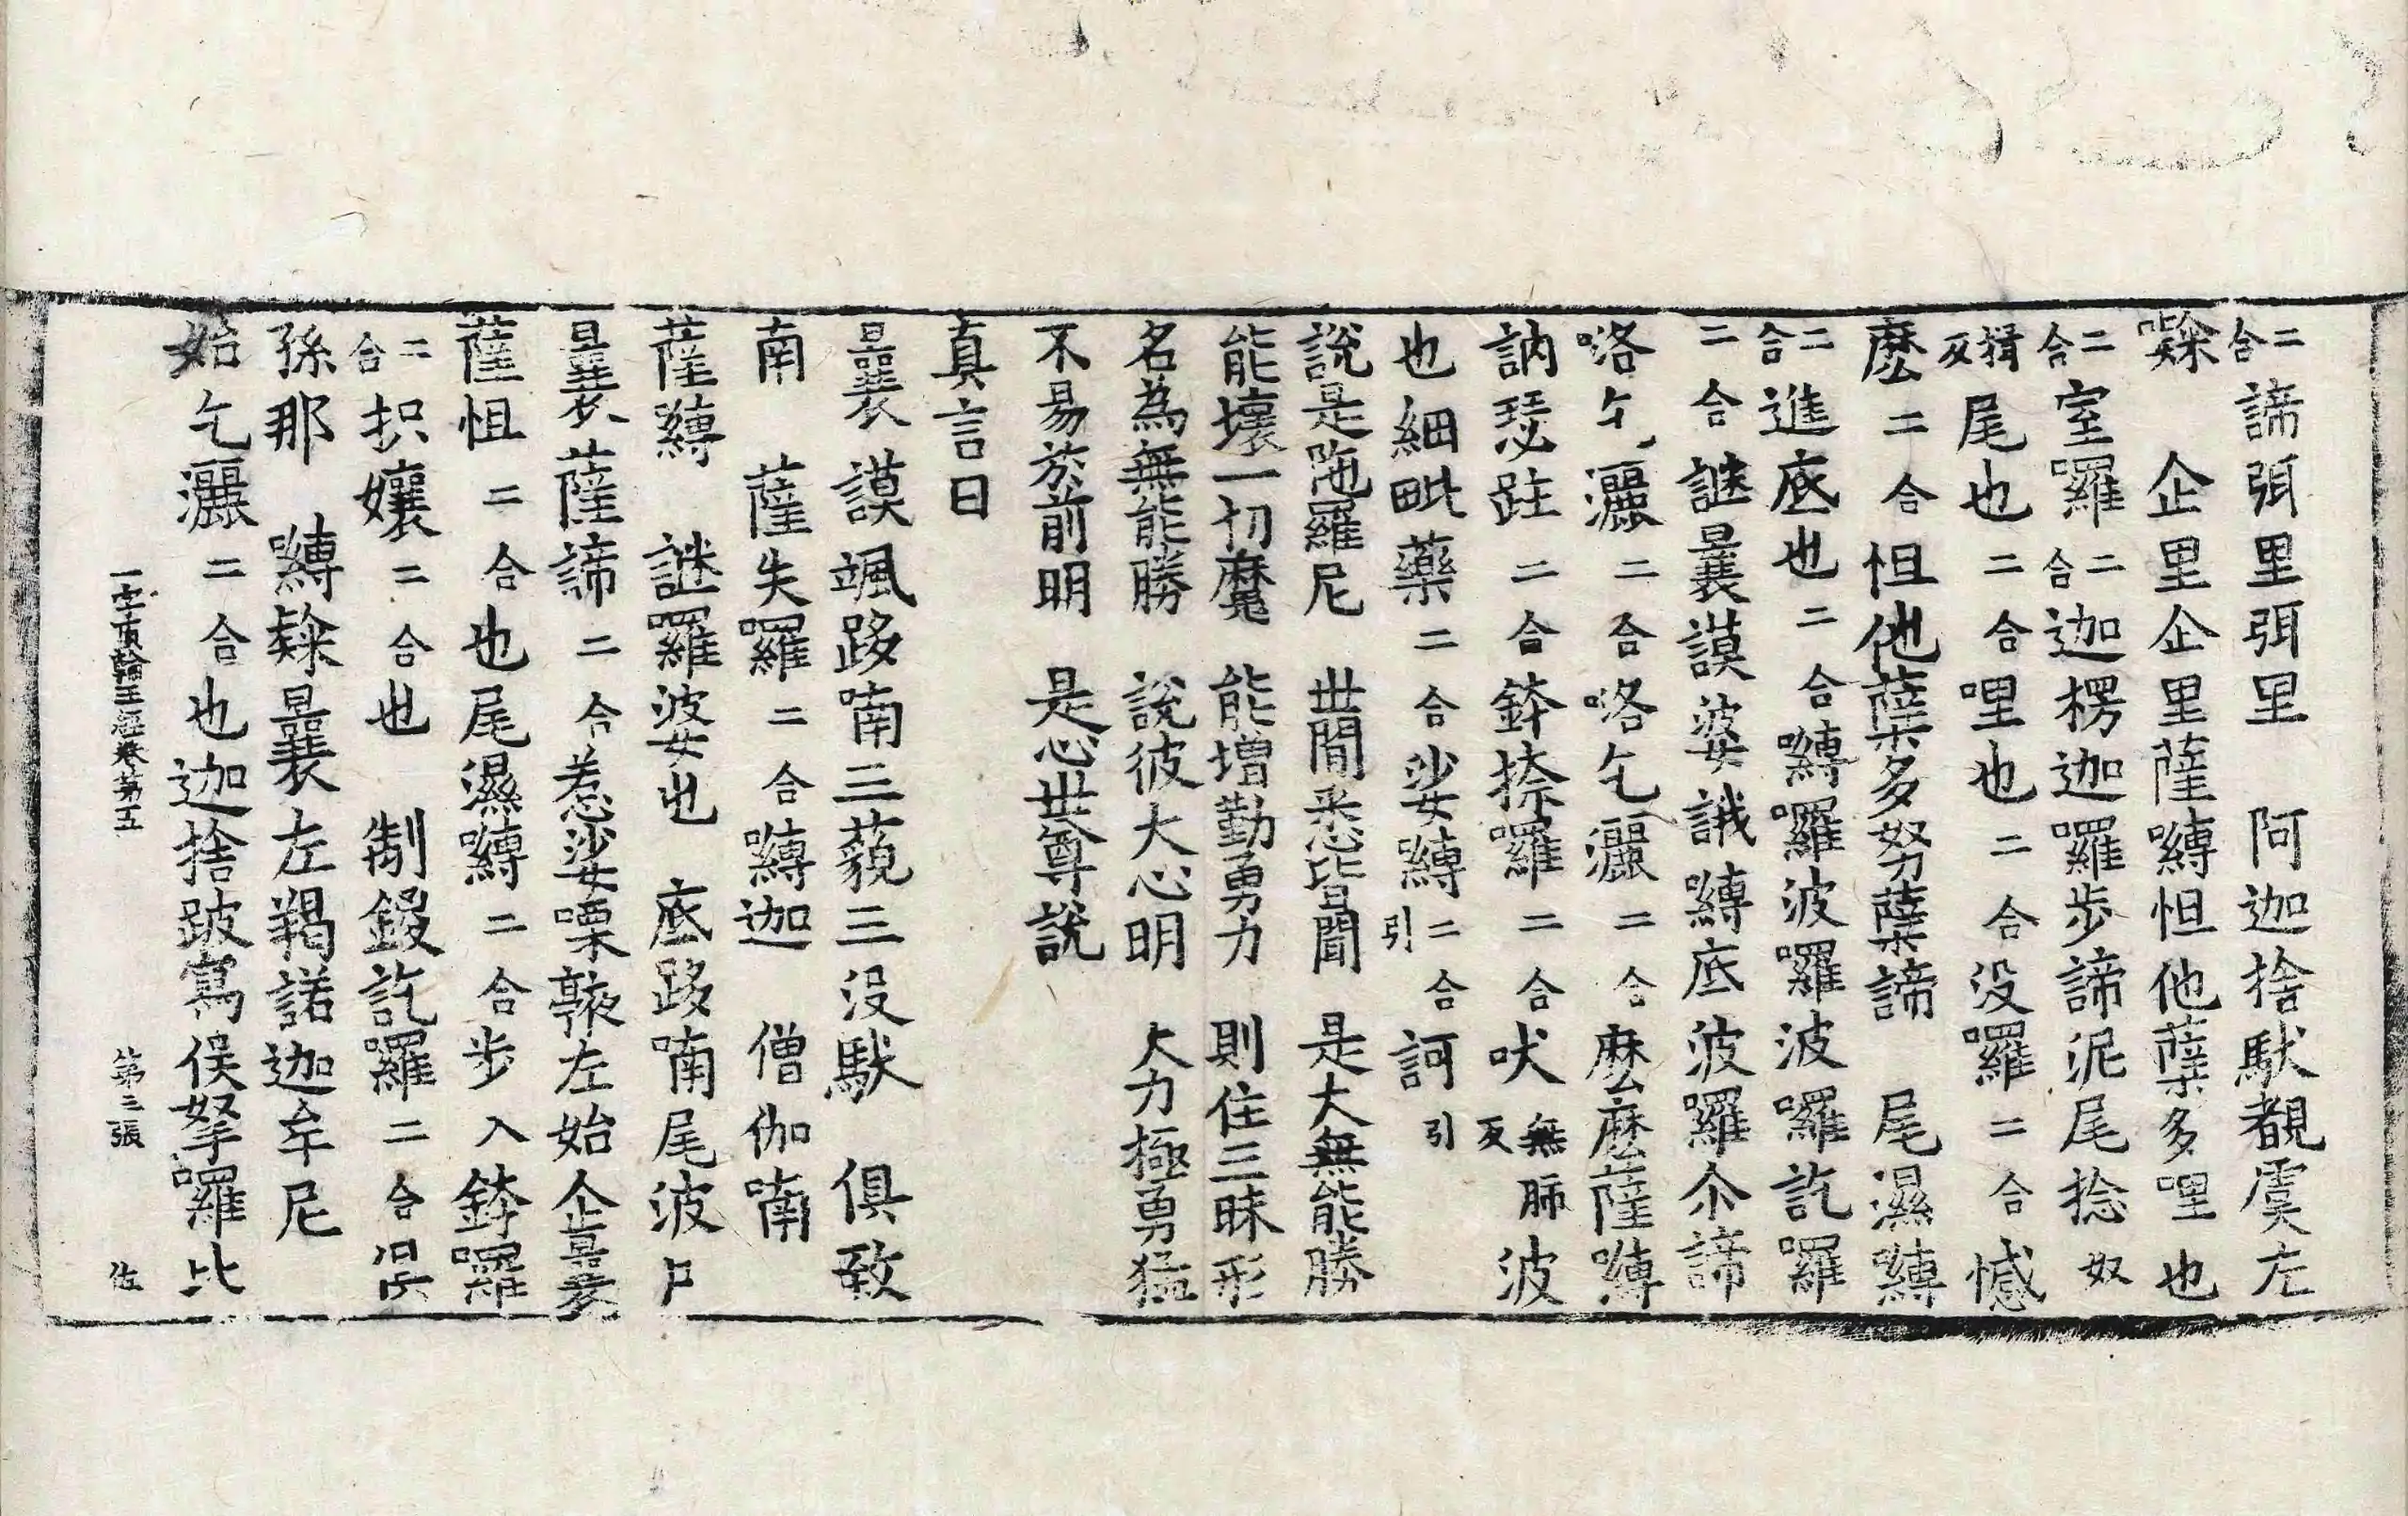 二合諦弭里弭里　阿迦捨馱覩虞左
㘑　企里企里薩嚩怛他蘖多哩也
二合室囉二合迦楞迦囉步諦泥尾捻奴
揖反尾也二合哩也二合没囉二合憾
麽二合怛他蘖多努蘖諦　尾濕嚩
二合進底也二合嚩囉波囉波囉訖囉
二合謎曩謨婆誐嚩底波囉尒諦
咯乞灑二合咯乞灑二合麽麽薩嚩
訥瑟跓二合鉢捺囉二合吠無肺反波
也細毗藥二合娑嚩引二合訶引
說是陁羅尼　世間悉皆聞　是大無能勝
能壞一切魔　能增勤勇力　則住三昧形
名為無能勝　說彼大心明　大力極勇猛
不易於前明　是心世尊說
真言曰
曩謨颯跢喃三藐三没馱　俱致
南　薩失囉二合嚩迦　僧伽喃
薩嚩　謎羅婆也　底跢喃尾波尸
曩薩諦二合惹娑㗚𩎟左始企曩
薩怛二合也尾濕嚩二合步入鉢囉
二合枳孃二合也　制鋑訖羅二合
孫那　嚩㘑曩左羯諾迦牟尼
始乞灑二合也迦捨跛寫俟拏囉比
一字頂輪王經卷第五　第三張　佐